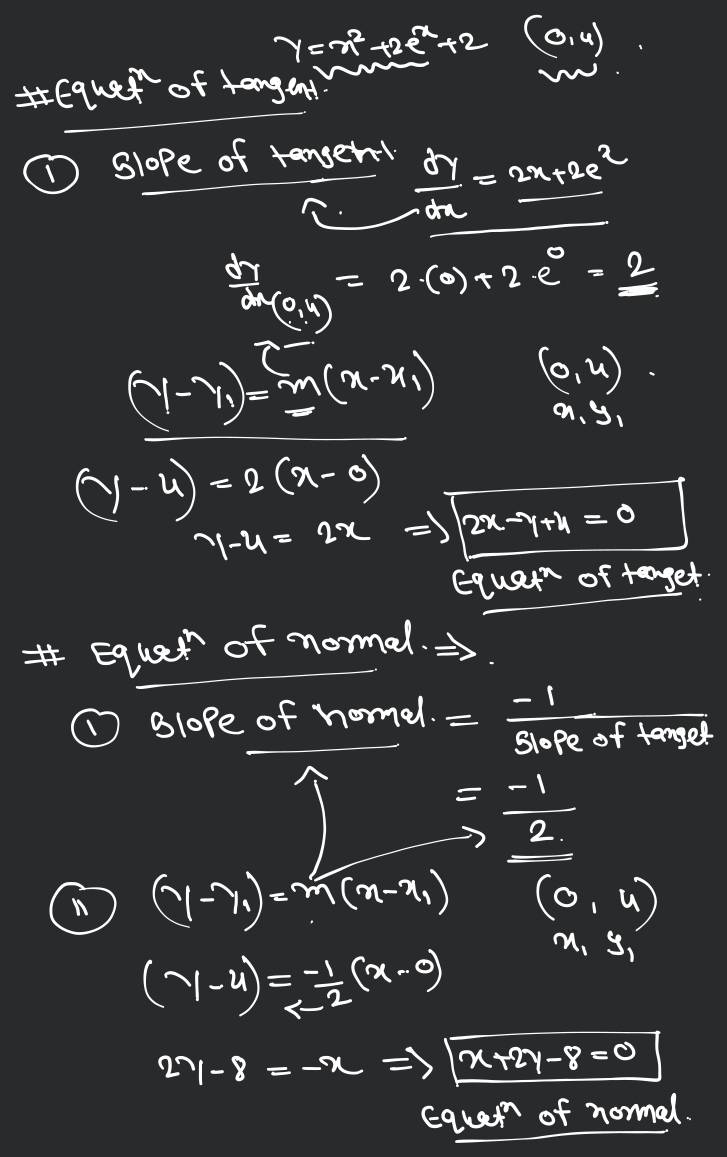 y = x² + 2eˣ + 2 (0,4).
# Equatⁿ of tangent.
① Slope of tangent. dy/dx = 2x+2e^x
dy/dx (0,4) = 2·(0)+2·e⁰ = 2
(y-y₁) = m(x-x₁) (0,4).
x₁ y₁
(y-4) = 2(x-0)
y-4 = 2x => 2x-y+4 = 0
Equatⁿ of tanget.
# Equatⁿ of normal. =>.
① Slope of normal. = -1/Slope of tanget
= -1/2.
ⅱ (y-y₁) = m(x-x₁) (0, 4)
x₁ y₁
(y-4) = -1/2 (x-0)
2y-8 = -x => x+2y-8=0
Equatⁿ of normal.